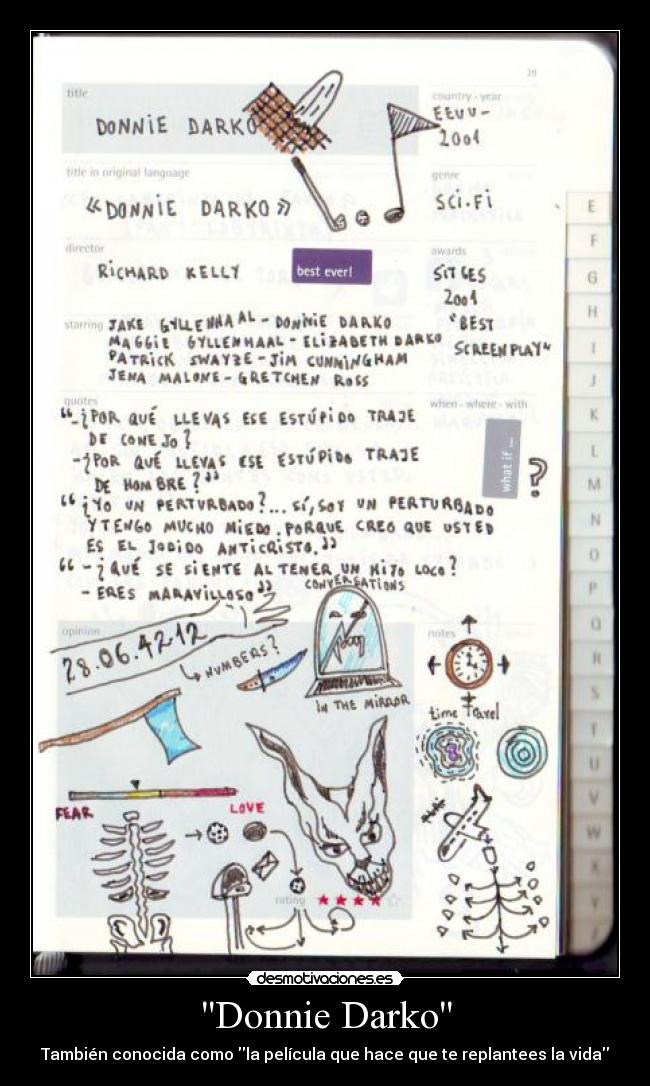 20
title
DONNiE DARKO
country - year
EEUU -
2001
title in original language
«DONNiE DARKO»
genre
SCi.Fi
director
RiCHARD KELLY
best ever!
awards
SiTGES
2001
"BEST
SCREENPLAY"
starring
JAKE GYLLENHAAL - DONNiE DARKO
MAGGiE GYLLENHAAL - ELiZABETH DARKO
PATRiCK SWAYZE - JiM CUNNiNGHAM
JENA MALONE - GRETCHEN ROSS
quotes
when - where - with
“-¿POR QUÉ LLEVAS ESE ESTÚPiDO TRAJE
DE CONEJO?
-¿POR QUÉ LLEVAS ESE ESTÚPiDO TRAJE
DE HOMBRE?”
what if ...
?
“¿YO UN PERTURBADO?... Sí, SOY UN PERTURBADO
Y TENGO MUCHO MiEDO. PORQUE CREO QUE USTED
ES EL JODiDO ANTiCRiSTO.”
“-¿QUÉ SE SiENTE AL TENER UN HiJO LOCO?
- ERES MARAViLLOSO”
CONVERSATiONS
iN THE MiRROR
opinion
28.06.42.12
NUMBERS?
notes
time Travel
FEAR
LOVE
rating
E
F
G
H
I
J
K
L
M
N
O
P
Q
R
S
T
U
V
W
X
Y
desmotivaciones.es
"Donnie Darko"
También conocida como "la película que hace que te replantees la vida"